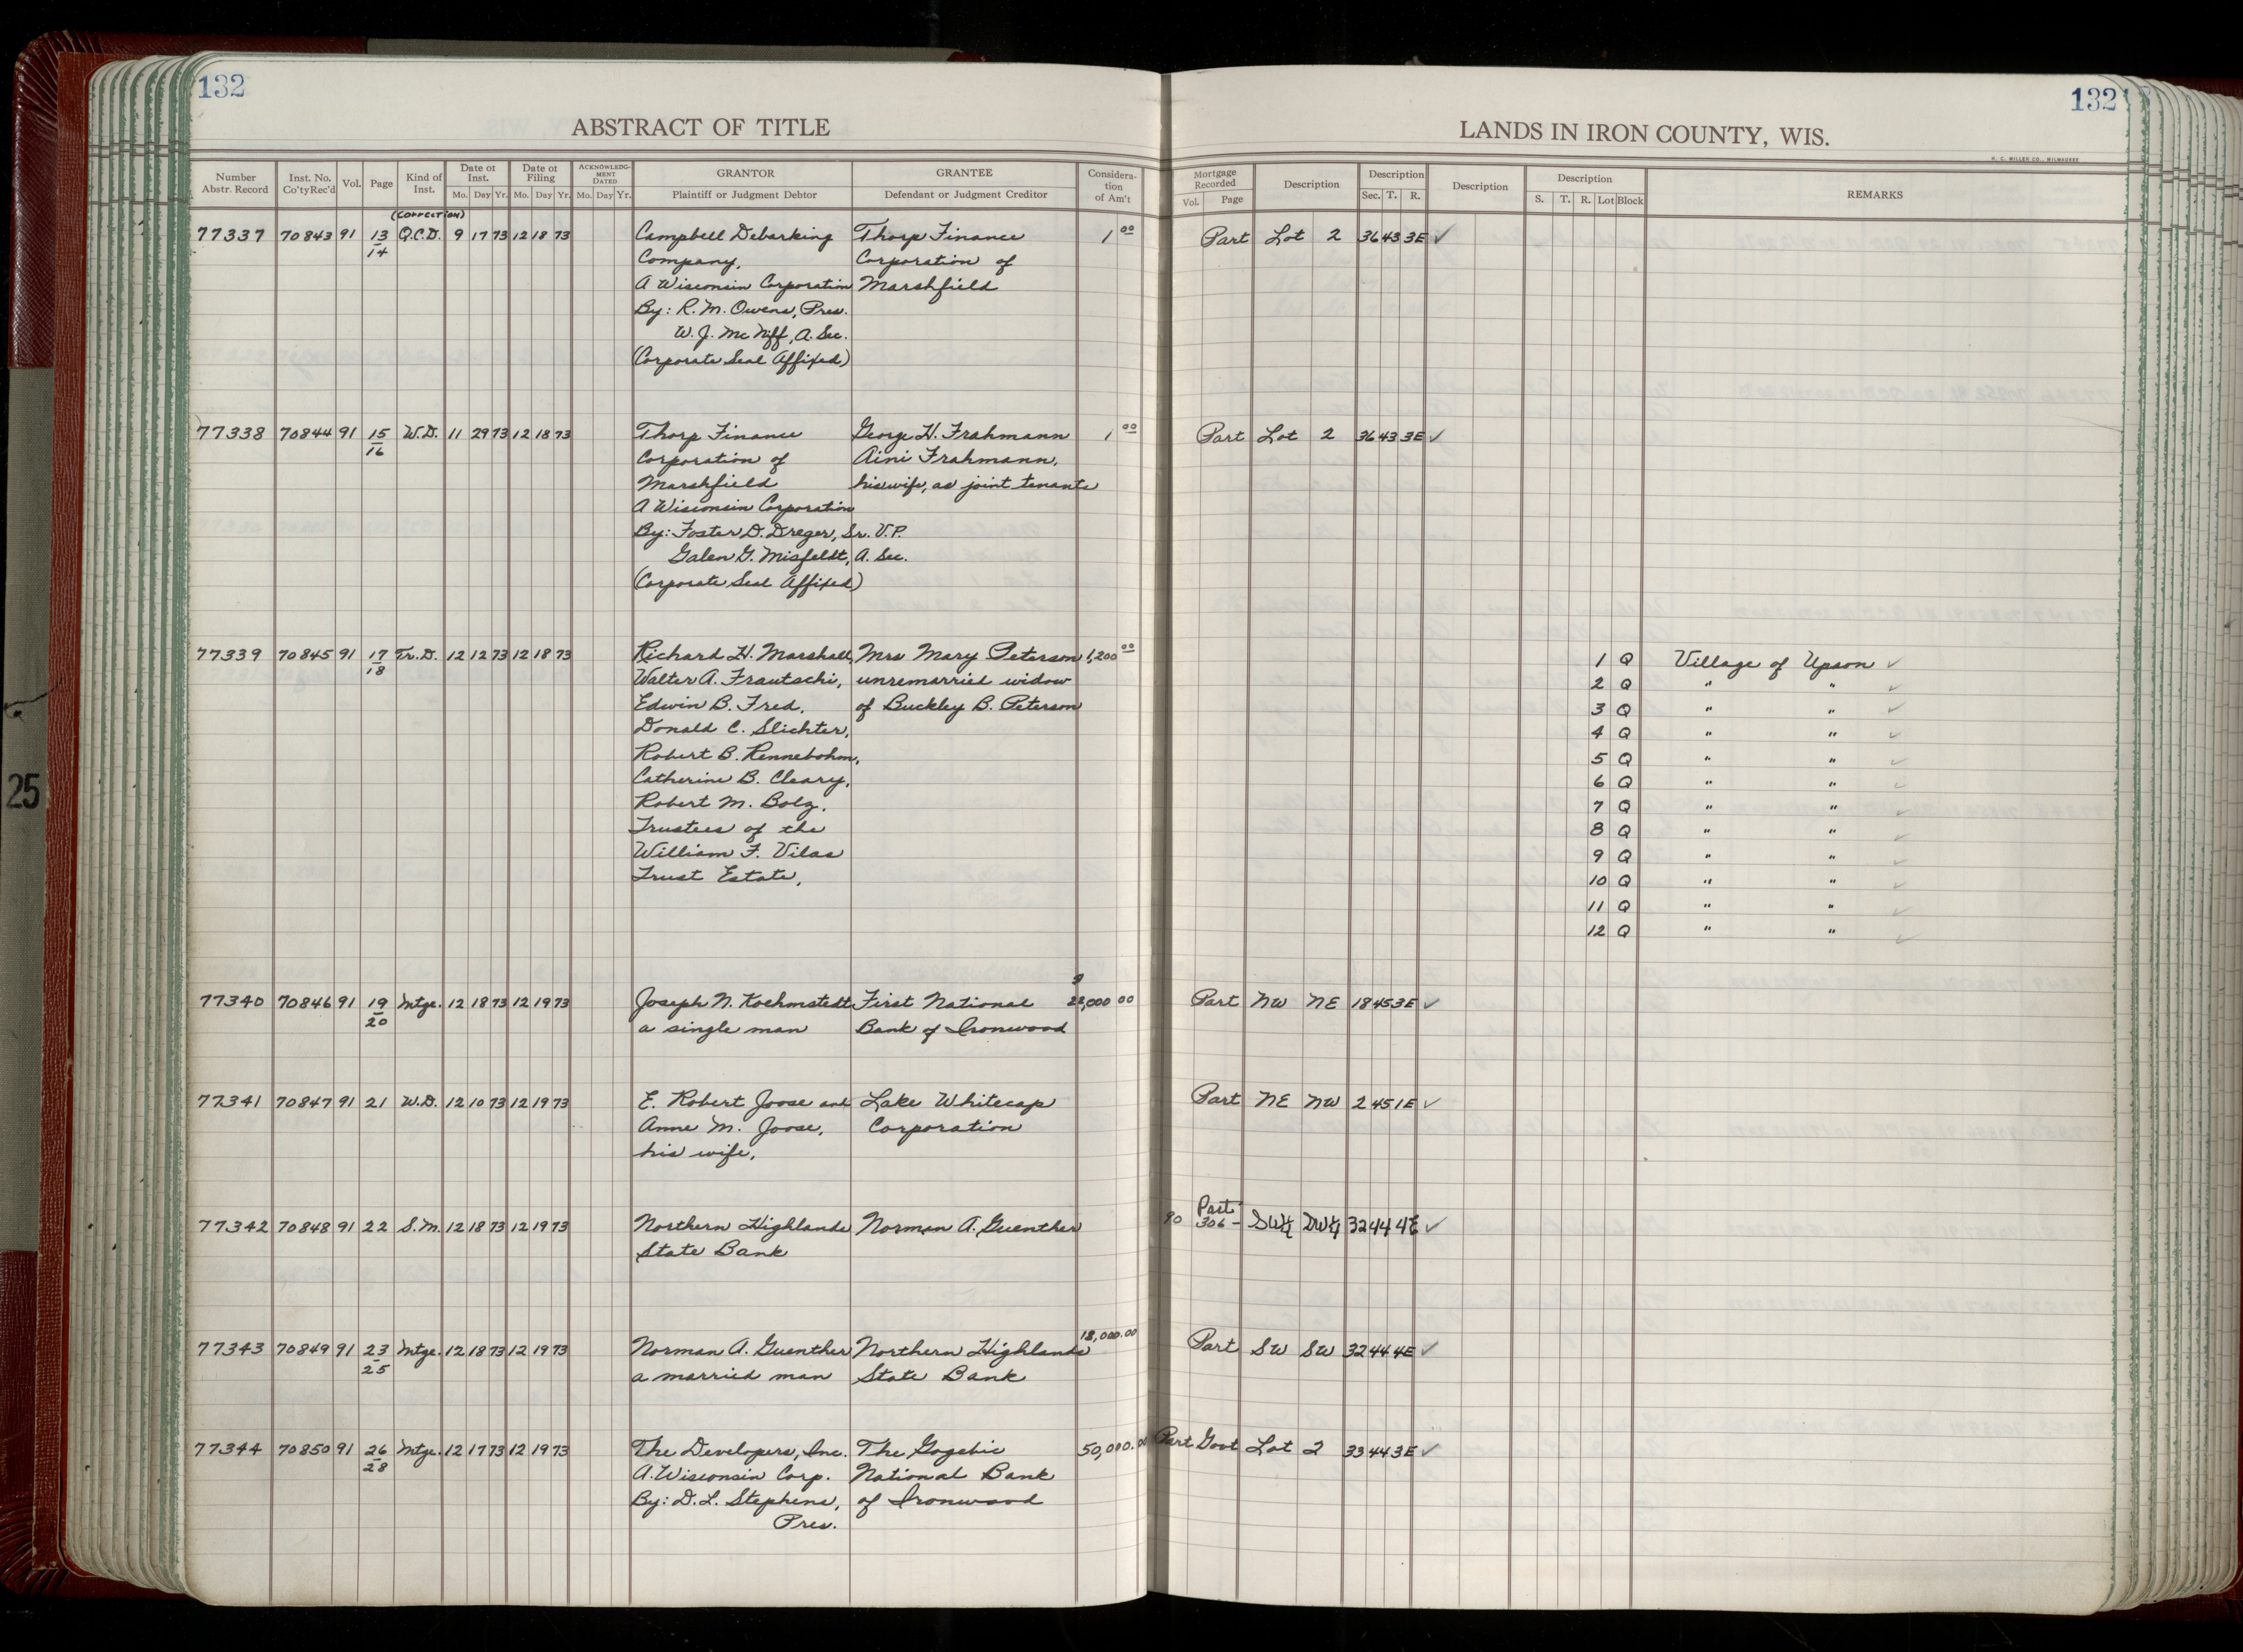 132
132
ABSTRACT OF TITLE
LANDS IN IRON COUNTY, WIS.
H. C. MILLER CO., MILWAUKEE
Number Abstr. Record
Inst. No. Co'tyRec'd
Vol.
Page
Kind of Inst.
Date of Inst.
Mo. Day Yr.
Date of Filing
Mo. Day Yr.
ACKNOWLEDGMENT DATED
Mo. Day Yr.
GRANTOR
Plaintiff or Judgment Debtor
GRANTEE
Defendant or Judgment Creditor
Consideration of Am't
Mortgage Recorded
Vol. Page
Description
Description
Sec. T. R.
Description
Description
S. T. R. Lot Block
REMARKS
(CORRECTION)
77337 70843 91 13 Q.C.D. 9 17 73 12 18 73 Campbell Debarking Thorp Finance 1 00 Part Lot 2 36 43 3E ✓
14 Company, Corporation of
A Wisconsin Corporation Marshfield
By: R. M. Owens, Pres.
W. J. McNiff, A. Sec.
(Corporate Seal Affixed)
77338 70844 91 15 W.D. 11 29 73 12 18 73 Thorp Finance George H. Frahmann 1 00 Part Lot 2 36 43 3E ✓
16 Corporation of Aini Frahmann,
Marshfield his wife, as joint tenants
A Wisconsin Corporation
By: Foster D. Dreger, Sr. V.P.
Galen G. Misfeldt, A. Sec.
(Corporate Seal Affixed)
77339 70845 91 17 Tr.D. 12 12 73 12 18 73 Richard H. Marshall, Mrs Mary Peterson 1,200 00 1 Q Village of Upson ✓
18 Walter A. Frautschi, unremarried widow 2 Q " " ✓
Edwin B. Fred, of Buckley B. Peterson 3 Q " " ✓
Donald C. Slichter, 4 Q " " ✓
Robert B. Rennebohm, 5 Q " " ✓
Catherine B. Cleary, 6 Q " " ✓
Robert M. Bolz, 7 Q " " ✓
Trustees of the 8 Q " " ✓
William F. Vilas 9 Q " " ✓
Trust Estate, 10 Q " " ✓
11 Q " " ✓
12 Q " " ✓
77340 70846 91 19 Mtge. 12 18 73 12 19 73 Joseph N. Koehmstedt First National 000 00 Part NW NE 18 45 3E ✓
20 a single man Bank of Ironwood
77341 70847 91 21 W.D. 12 10 73 12 19 73 E. Robert Joose and Lake Whitecap Part NE NW 2 45 1E ✓
Anne M. Joose, Corporation
his wife,
Part
77342 70848 91 22 S.M. 12 18 73 12 19 73 Northern Highlands Norman A. Guenther 90 306 - SW¼ SW¼ 32 44 4E ✓
State Bank
18,000.00
77343 70849 91 23 Mtge. 12 18 73 12 19 73 Norman A. Guenther Northern Highlands Part SW SW 32 44 4E ✓
25 a married man State Bank
77344 70850 91 26 Mtge. 12 17 73 12 19 73 The Developers, Inc. The Gogebic 50,000.00 Part Govt Lot 2 33 44 3E ✓
28 A. Wisconsin Corp. National Bank
By: D. L. Stephens, of Ironwood
Pres.
25